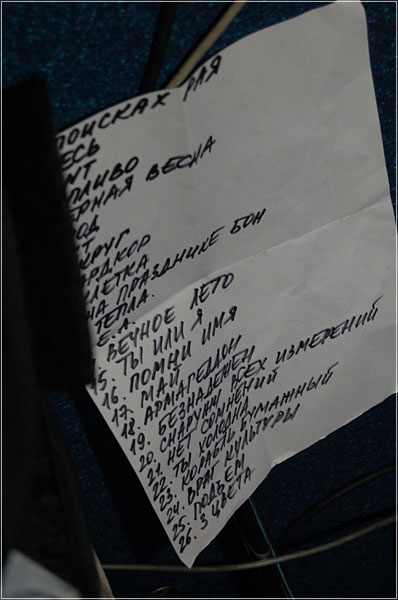 ПОИСКАХ РАЯ
ЕСЬ
NT
ПЛИВО
ЕРНАЯ ВЕСНА
ОД
ЕТ
КРУГ
РДКОР
ЛЕТКА
НА ПРАЗДНИКЕ БОН
ТЕПЛА.
Е. А.
ВЕЧНОЕ ЛЕТО
15. ТЫ ИЛИ Я
16. ПОМНИ ИМЯ
17. МАЙ
18. АРМАГЕДДОН
19. БЕЗНАДЕЖЕН
20. СНАРУЖИ ВСЕХ ИЗМЕРЕНИЙ
21. НЕТ СОМНЕНИЙ
22. ТЫ ХОЛОДНА
23. КОРАБЛЬ БУМАЖНЫЙ
24. ВРАГ КУЛЬТУРЫ
25. ПОДЪЕМ
26. 3 ЦВЕТА